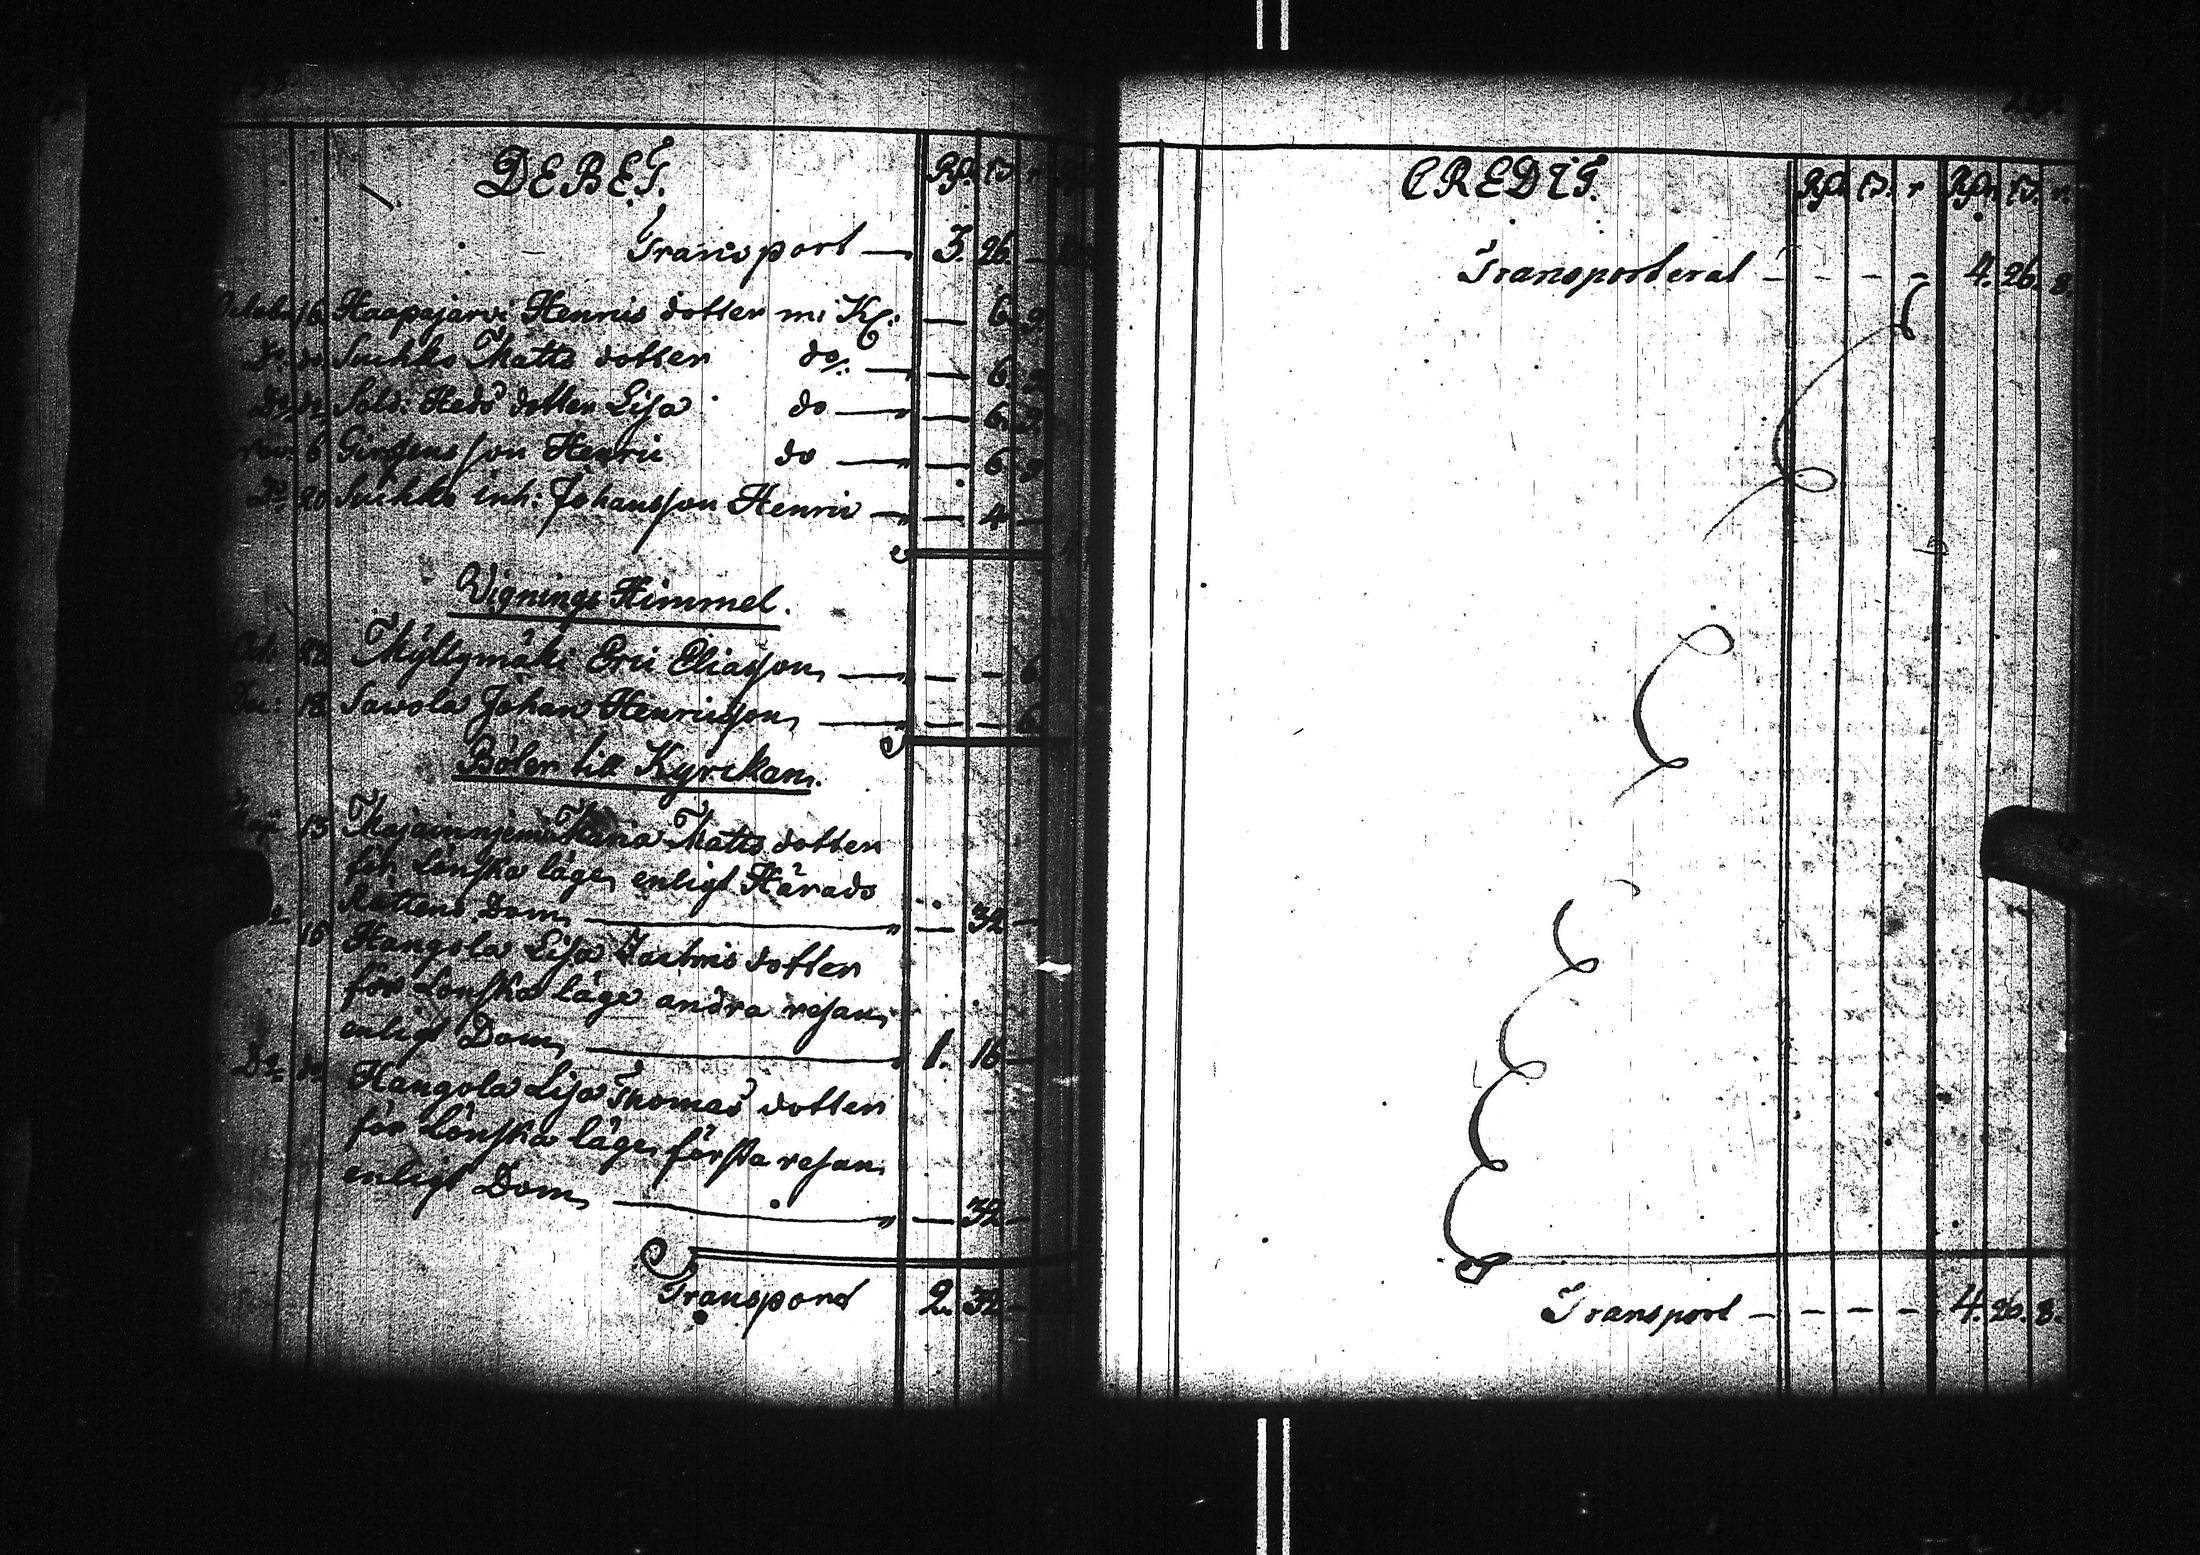 DEBET. Rd. ß. r
Transport — 3. 26. —
October 16 Haapajärvi Henrics dotter m: Kl: — 6. 9.
Do do Suikko Matts dotter do — 6. 9.
Do do Sold: Heds dotter Lisa do — 6. 9.
Nov. 6 Girgensson Henric do — 6. 9
Do 20 Suikko inh: Johansson Henric — 4 —
Vignings Himmel.
Oct: Myllymäki Eric Eliasson — — 6.
Dec: 18 Sawola Johan Henricsson — — 6
Böter till Kyrckan.
Maji 13 Maria Matts dotter
för Lönska läge enligt Härads
Rättens Dom — 32 —
15 Hangola Lisa dotter
för Lönska läge andra resan
enligt Dom 1. 16 —
Do do Hangola Lisa Thomas dotter
för Lönska läge första resan
enligt Dom — 32 —
Transport 2. 32 —
CREDIT. Rd. ß. r Rd. ß. r.
Transporterat - - - - 4. 26. 8.
Transport - - - - 4. 26. 8.